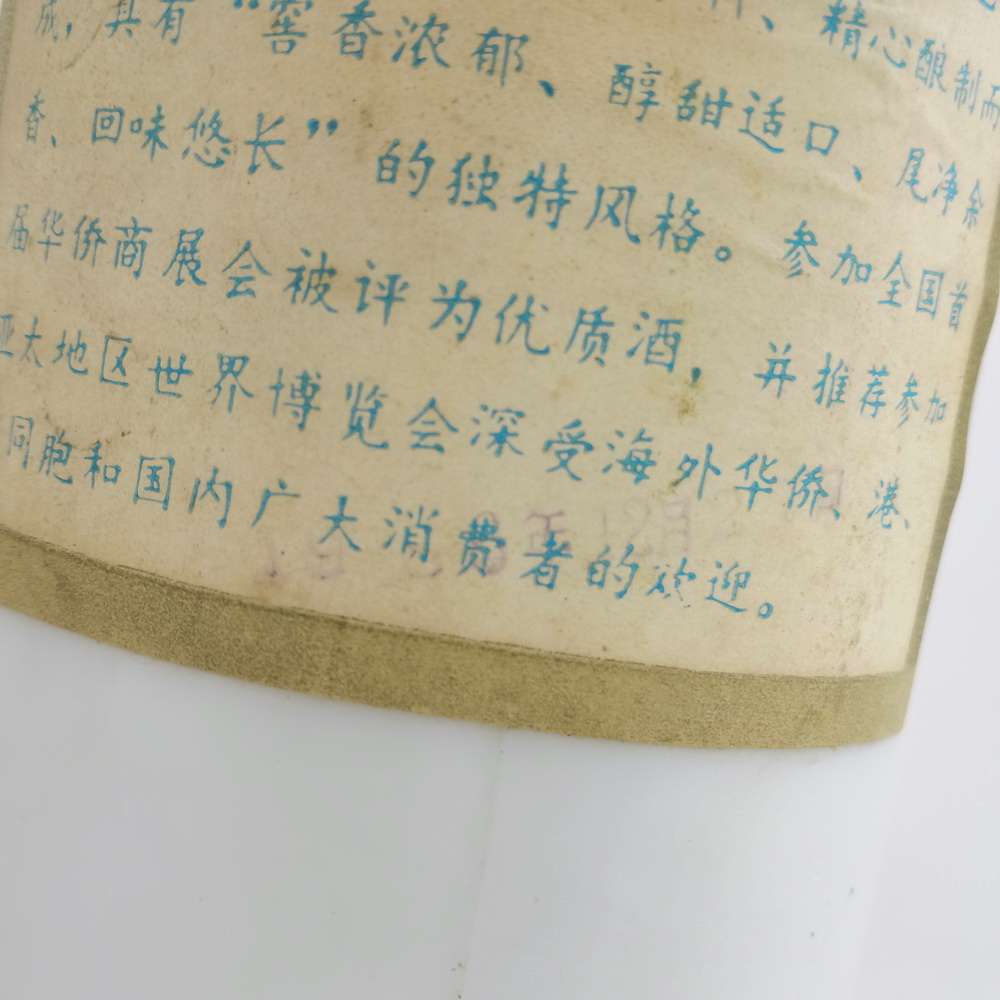 、精心酿制而
成，具有“窖香浓郁、醇甜适口、尾净余
香、回味悠长”的独特风格。参加全国首
届华侨商展会被评为优质酒，并推荐参加
亚太地区世界博览会深受海外华侨、港、
同胞和国内广大消费者的欢迎。
年12月